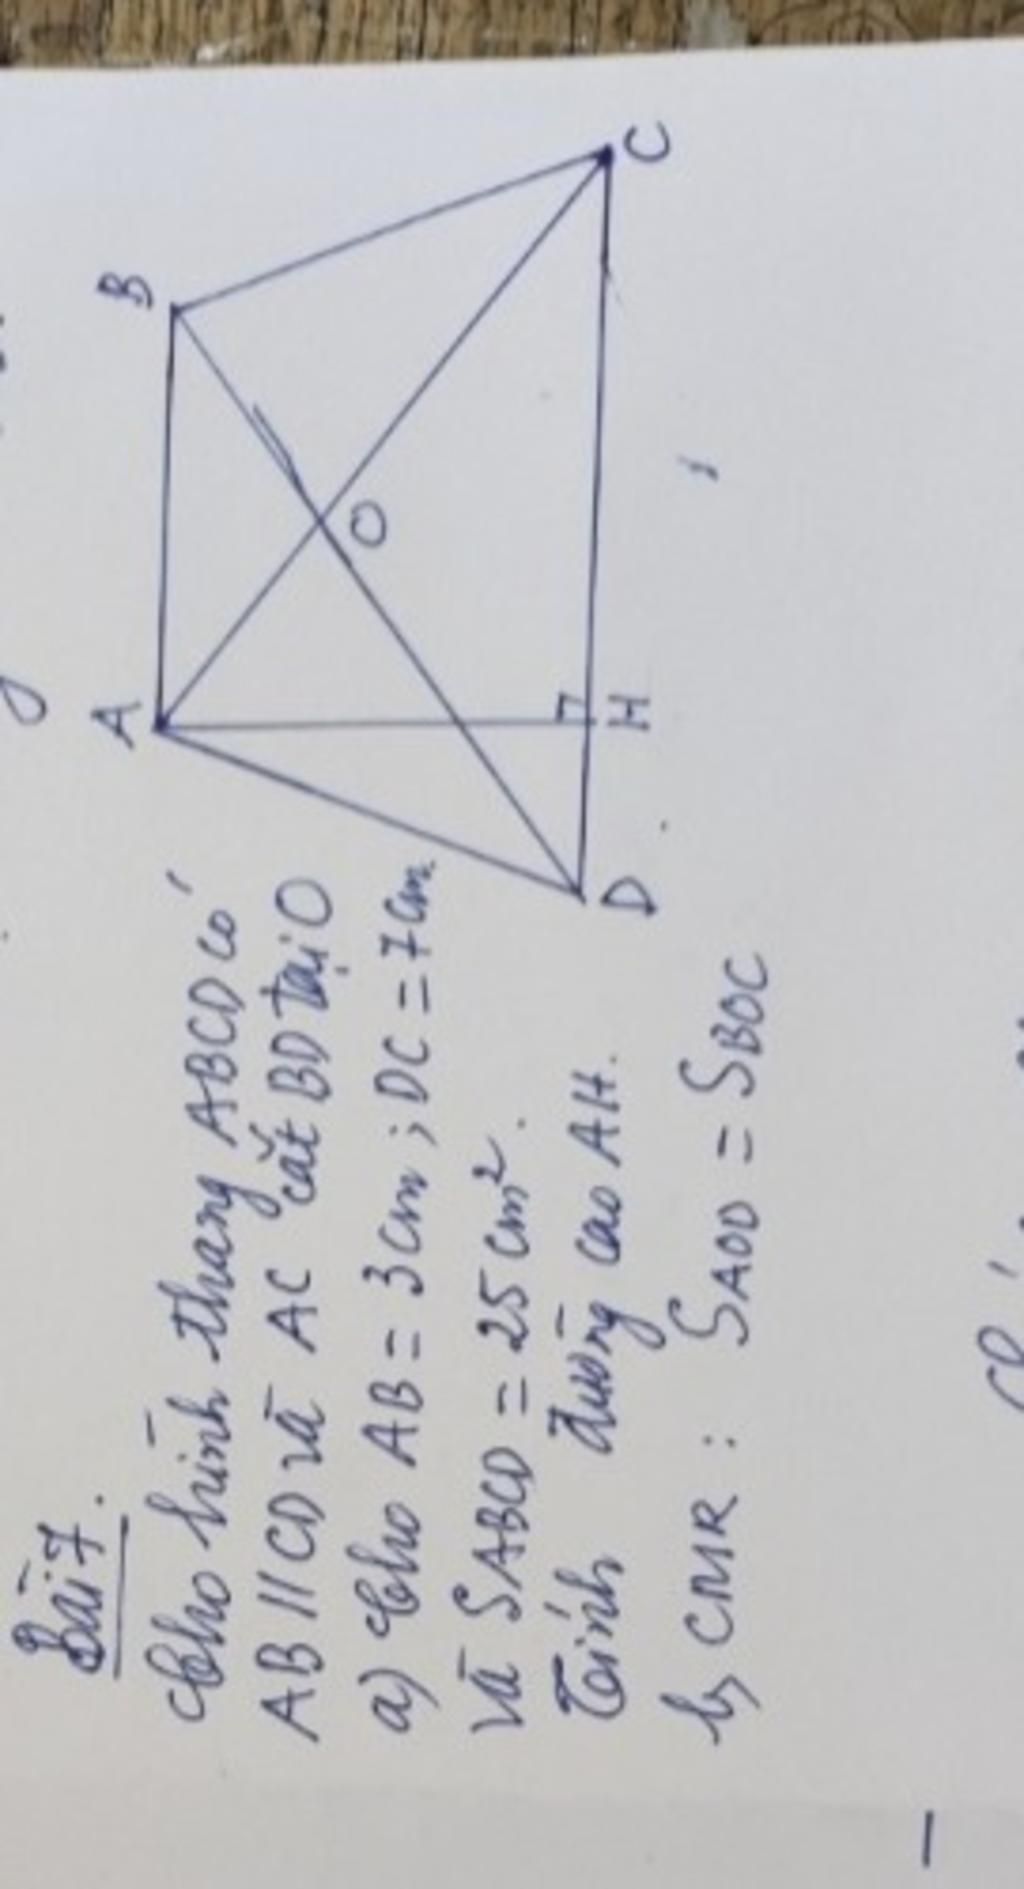 Bài 7.
Cho hình thang ABCD có
AB // CD và AC cắt BD tại O
a) Cho AB = 3cm ; DC = 7cm.
và SABCD = 25 cm².
Tính đường cao AH.
b, CMR : SAOD = SBOC
A
B
O
D
H
C